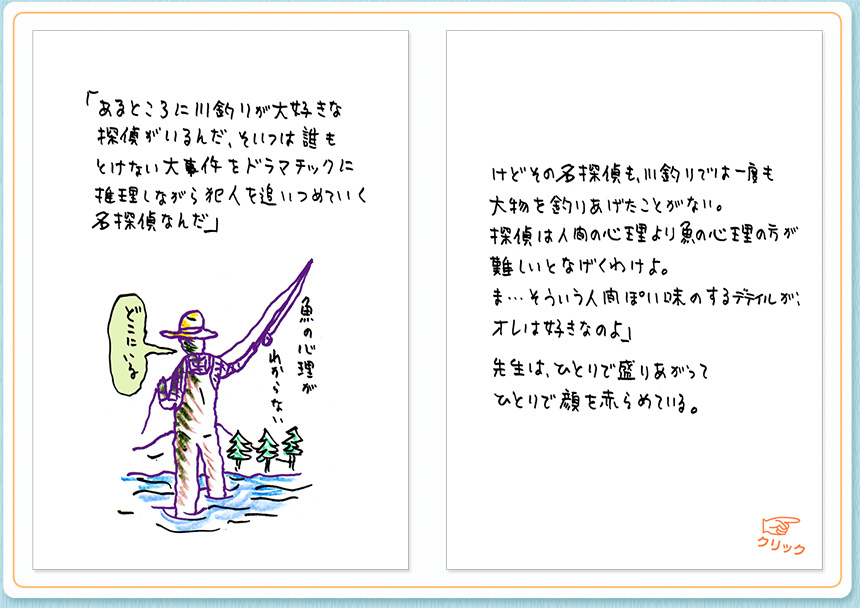 「あるところに川釣りが大好きな
探偵がいるんだ、そいつは誰も
とけない大事件をドラマチックに
推理しながら犯人を追いつめていく
名探偵なんだ」
どこにいる
魚の心理が
わからない
けどその名探偵も、川釣りでは一度も
大物を釣りあげたことがない。
探偵は人間の心理より魚の心理の方が
難しいとなげくわけよ。
ま…そういう人間ぽい味のするデテイルが、
オレは好きなのよ」
先生は、ひとりで盛りあがって
ひとりで顔を赤らめている。
クリック